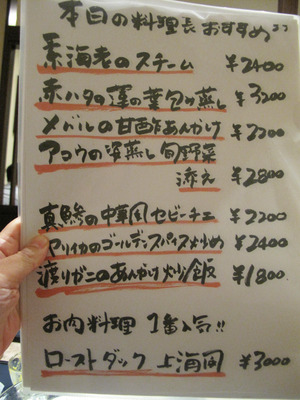 本日の料理長おすすめ
海老のスチーム ¥2400
赤ハタの蓮の葉包み蒸し ¥3200
メバルの甘酢あんかけ ¥2200
アコウの姿蒸し旬野菜
添え ¥2800
真鯵の中華風セビーチェ ¥2200
ヤリイカのゴールデンスパイス炒め ¥2400
渡りガニのあんかけ炒飯 ¥1800
お肉料理 1番人気!!
ローストダック 上海風 ¥3000